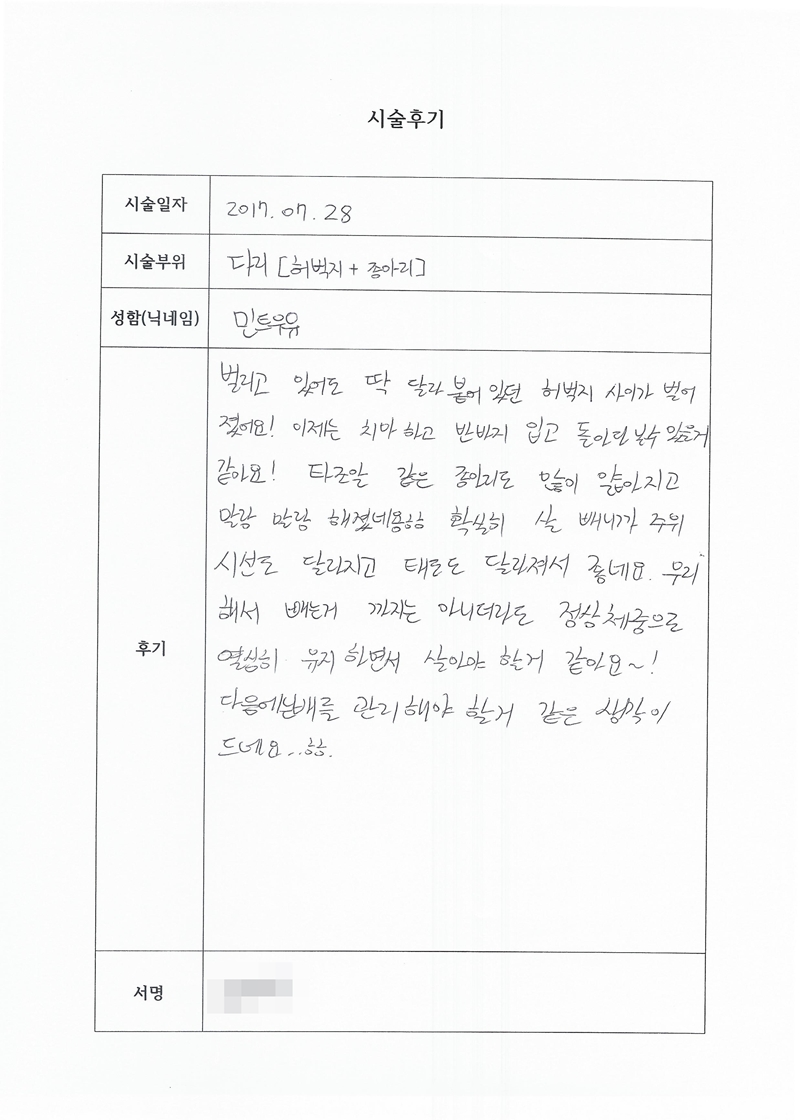 시술후기
시술일자 2017. 07. 28
시술부위 다리 [허벅지 + 종아리]
성함(닉네임) 민트우유
후기
벌리고 있어도 딱 달라붙어 있던 허벅지 사이가 벌어
졌어요! 이제는 치마 하고 반바지 입고 돌아다닐수 있을거
같아요! 타조알 같은 종아리도 많이 얇아지고
말랑 말랑 해졌네용ㅎㅎ 확실히 살 빼니까 주위
시선도 달라지고 태도도 달라져서 좋네요. 무리
해서 빼는거 까지는 아니더라도 정상체중으로
열심히 유지 하면서 살아야 할거 같아요~!
다음에 배를 관리해야 할거 같은 생각이
드네요..ㅎㅎ.
서명